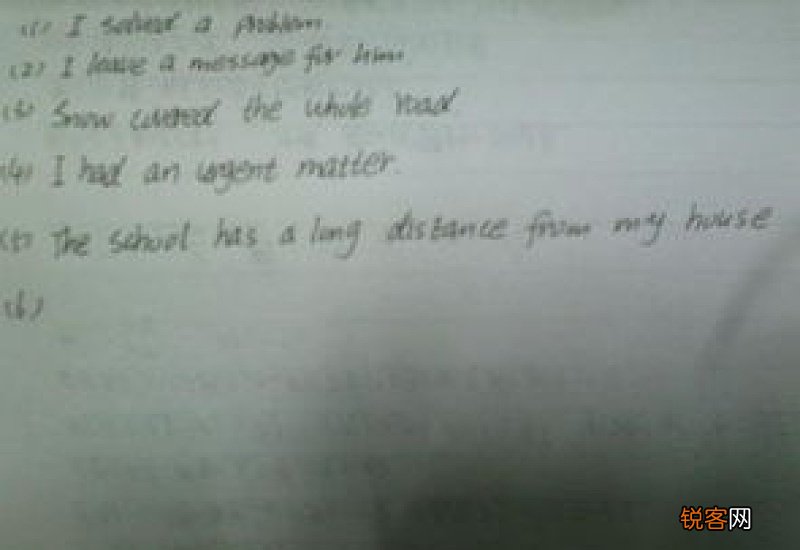 (1) I solved a problem
(2) I leave a message for him
(3) Snow covered the whole road
(4) I had an urgent matter.
(5) The school has a long distance from my house
(6)
锐客网